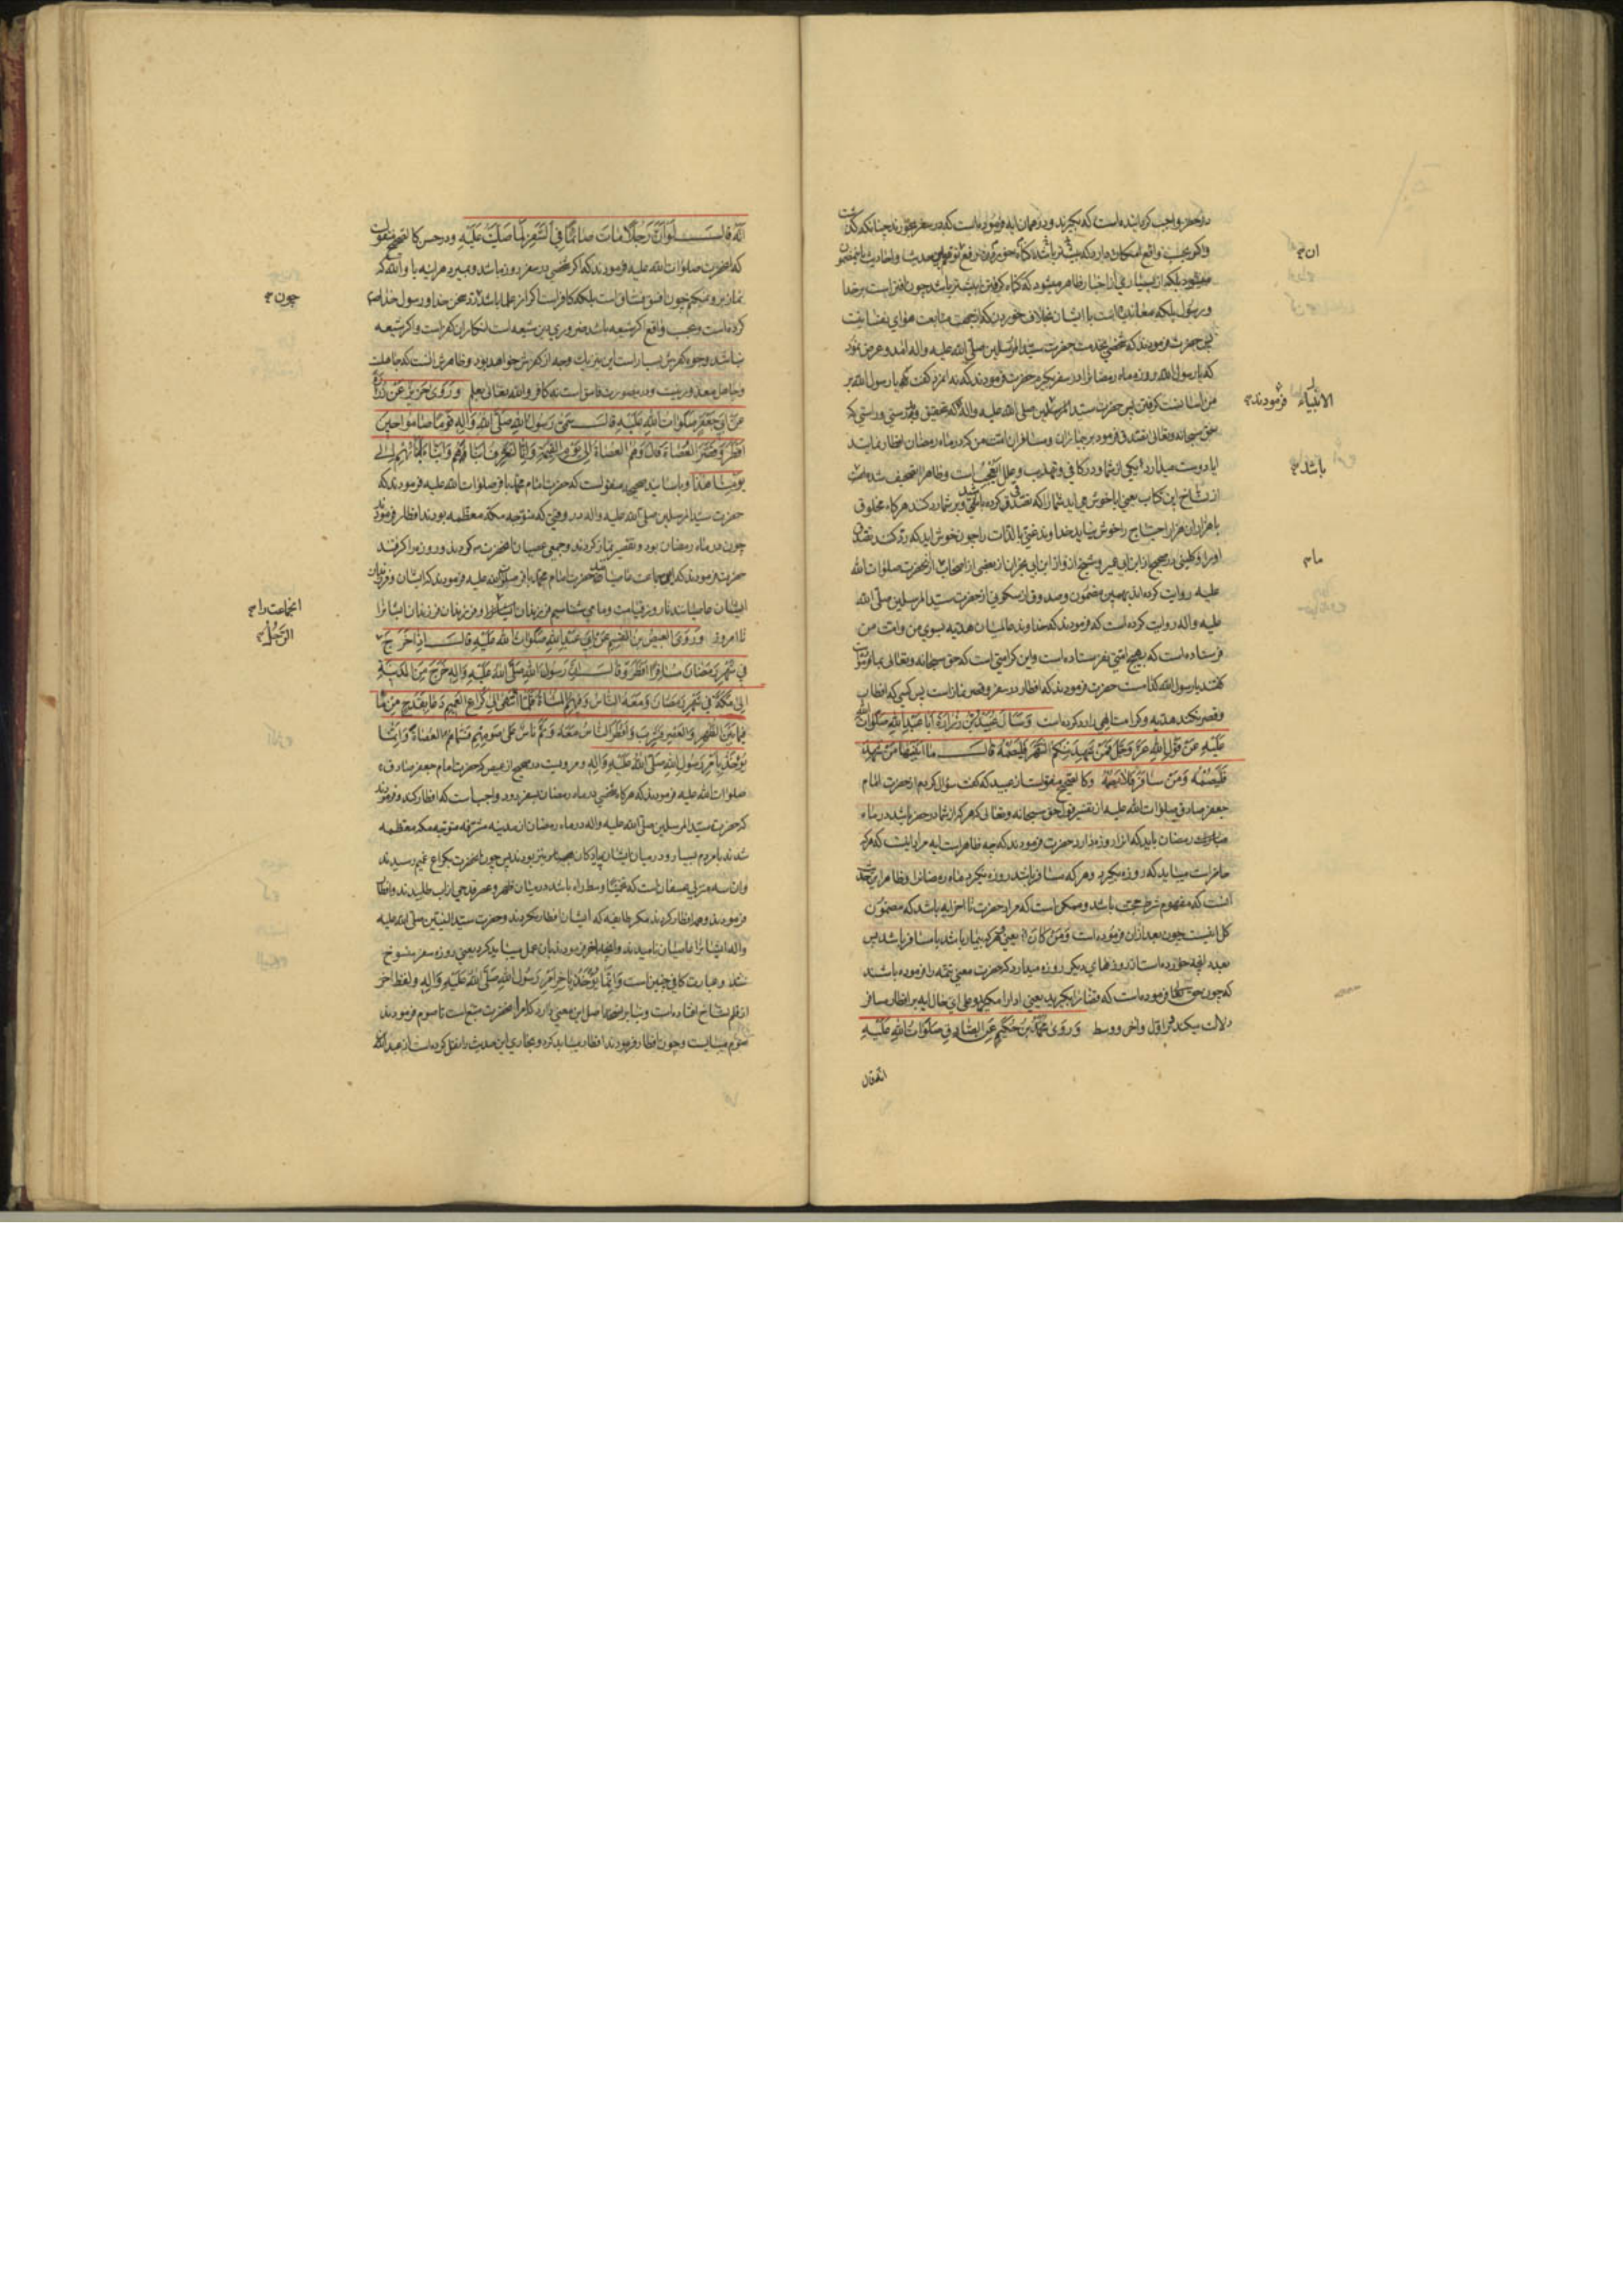 در حضر واجب گردانیده است که بگیرند و در همان ایه فرموده است که در سفر بخورند چنانکه گذشت
ورسول بلکه معاندیست با ایشان بخلاف خوردن که از جهت متابعت هوای نفسانیت
پس حضرت فرمودند که شخصی بخدمت حضرت سید المرسلین صلی الله علیه واله امد و عرض نمود
که یا رسول الله روزه ماه رمضانرا در سفر بگیرم حضرت فرمودند که نه انمرد گفت که یا رسول الله بر
من اسانست گرفتن پس حضرت سید المرسلین صلی الله علیه واله که بتحقیق و بدرستی و راستی که
حق سبحانه وتعالی تصدق فرمود بر بیماران ومسافران امت من که در ماه رمضان افطار نمایند
از نساخ این کتاب یعنی ایا خوش می اید شما را که تصدق کرده باشد
با هزاران هزار احتیاج را خوش نیاید خداوند غنی بالذات را چون خوش اید که رد کنند تصدق
اورا وکلینی در صحیح از ابن ابی عمیر وشیخ از ابن ابی نجران از بعضی از اصحاب از حضرت صلوات الله
علیه روایت کرده اند بهمین مضمون وصدوق از سکونی از حضرت سید المرسلین صلی الله
علیه واله روایت کرده است که فرمودند که خداوند عالمیان هدیه بسوی من وامت من
فرستاده است که بهیچ امتی نفرستاده است واین کرامتی است که حق سبحانه وتعالی
گفتند یا رسول الله کدامست حضرت فرمودند که افطار در سفر وقصر نماز است پس کسی که افطار
وقصر نکند هدیه وکرامت الهی را رد کرده است وَسَأَلَ عُبَیْدُ بْنُ زُرَارَةَ اَبَا عَبْدِ اللهِ صَلَوَاتُ اللهِ
عَلَیْهِ عَنْ قَوْلِ اللهِ عَزَّ وَجَلَّ فَمَنْ شَهِدَ مِنْکُمُ الشَّهْرَ فَلْیَصُمْهُ قَالَ مَا اَبْیَنَهَا مَنْ شَهِدَ
فَلْیَصُمْهُ وَمَنْ سَافَرَ فَلَا یَصُمْهُ وکالصحیح منقولست از عبید که گفت سؤال کردم از حضرت امام
جعفر صادق صلوات الله علیه از تفسیر قول حق سبحانه وتعالی که هر که از شما در حضر باشد در ماه
مبارک رمضان باید که انرا روزه دارد حضرت فرمودند که چه ظاهر است ایه مراد اینست که هر که
حاضر است میباید که روزه بگیرد وهر که مسافر باشد روزه نگیرد ماه رمضانرا وظاهر این حدیث
انست که مفهوم شرط حجت باشد وممکن است که مراد حضرت تا اخر ایه باشد که مضمون
کل اینست چون بعد ازان فرموده است وَمَنْ کَانَ یعنی هر که بیمار باشد یا مسافر باشد پس
بعدد انچه خورده است از روزهای دیگر روزه میدارد که حضرت معنی تتمه را فرموده باشند
که چون حق تعالی فرموده است که قضا را بگیرید یعنی ادا را مگیرید وعلی ای حال ایه بر افطار مسافر
دلالت میکند در اول واخر ووسط وَرَوَی مُحَمَّدُ بْنُ حَکِیمٍ عَنِ الصَّادِقِ صَلَوَاتُ اللهِ عَلَیْهِ
انه قال
ان
الانبیاء فرمودند
باشد
ما
اَنَّهُ قَالَ لَوْ اَنَّ رَجُلًا مَاتَ صَائِمًا فِی السَّفَرِ لَمَا صَلَّیْتُ عَلَیْهِ ودر حسن کالصحیح منقول است
که انحضرت صلوات الله علیه فرمودند که اگر شخصی در سفر روزه باشد وبمیرد هراینه
نماز برو نمیکنم چون فسق بلکه کافر است اگر از علما باشد
کرده است وبحسب واقع اگر شیعه باشد ضروری دین شیعه است انکار ان کفر است واگر شیعه
نباشد وجوه کفرش بسیار است این نیز یک وجه از کفرش خواهد بود وظاهرش انست که جاهلست
وجاهل معذور نیست ودرینصورت فاسق است نه کافر والله تعالی یعلم وَرَوَی حَرِیزٌ عَنْ زُرَارَةَ
عَنْ اَبِی جَعْفَرٍ صَلَوَاتُ اللهِ عَلَیْهِ قَالَ سَمَّی رَسُولُ اللهِ صَلَّی اللهُ عَلَیْهِ وَالِهِ قَوْمًا صَامُوا حِینَ
اَفْطَرَ وَقَصَّرَ الْعُصَاةَ قَالَ وَهُمُ الْعُصَاةُ اِلَی یَوْمِ الْقِیَمَةِ وَاِنَّا لَنَعْرِفُ اَبْنَاءَهُمْ وَاَبْنَاءَ اَبْنَائِهِمْ اِلَی
یَوْمِنَا هَذَا وباسانید صحیحه منقولست که حضرت امام محمد باقر صلوات الله علیه فرمودند که
حضرت سید المرسلین صلی الله علیه واله در وقتی که متوجه مکه معظمه بودند افطار فرمودند
چون در ماه رمضان بود وتقصیر نماز کردند وجمعی عصیان انحضرت کردند وروزه را گرفتند
حضرت فرمودند که این جماعت عاصیانند حضرت امام محمد باقر صلوات الله علیه فرمودند که ایشان وفرزندان
ایشان عاصیانند تا روز قیامت وما می شناسیم فرزندان ایشانرا وفرزندان فرزندان ایشانرا
تا امروز وَرَوَی الْعِیصُ بْنُ الْقَسِمِ عَنْ اَبِی عَبْدِ اللهِ صَلَوَاتُ اللهِ عَلَیْهِ قَالَ اِذَا خَرَجَ
فِی شَهْرِ رَمَضَانَ مُسَافِرًا اَفْطَرَ وَقَالَ اِنَّ رَسُولَ اللهِ صَلَّی اللهُ عَلَیْهِ وَالِهِ خَرَجَ مِنَ الْمَدِینَةِ
اِلَی مَکَّةَ فِی شَهْرِ رَمَضَانَ وَمَعَهُ النَّاسُ وَفِیهِمُ الْمُشَاةُ فَلَمَّا انْتَهَی اِلَی کُرَاعِ الْغَمِیمِ دَعَا بِقَدَحٍ مِنْ مَاءٍ
فِیمَا بَیْنَ الظُّهْرِ وَالْعَصْرِ فَشَرِبَ وَاَفْطَرَ النَّاسُ مَعَهُ وَتَمَّ نَاسٌ عَلَی صَوْمِهِمْ فَسَمَّاهُمُ الْعُصَاةَ وَاِنَّمَا
یُؤْخَذُ بِاَمْرِ رَسُولِ اللهِ صَلَّی اللهُ عَلَیْهِ وَالِهِ ومرویست در صحیح از عیص که حضرت امام جعفر صادق
صلوات الله علیه فرمودند که هرگاه شخصی در ماه رمضان بسفر رود واجب است که افطار کند وفرمودند
که حضرت سید المرسلین صلی الله علیه واله در ماه رمضان از مدینه مشرفه متوجه مکه معظمه
شدند با مردم بسیار ودر میان ایشان پیادگان نیز بودند پس چون انحضرت بکراع غمیم رسیدند
وان سه منزلی عسفان است که تخمینا وسط راه باشد در میان ظهر وعصر قدحی از اب طلبیدند وافطار
فرمودند وهمه افطار کردند مگر طایفه که ایشان افطار نکردند وحضرت سید النبیین صلی الله علیه
واله ایشانرا عاصیان نامیدند وانچه اخر فرمودند بان عمل میباید کرد یعنی روزه سفر منسوخ
شد وعبارت کافی چنین است وَاِنَّمَا یُؤْخَذُ بِاٰخِرِ اَمْرِ رَسُولِ اللهِ صَلَّی اللهُ عَلَیْهِ وَالِهِ ولفظ اخر
از قلم نساخ افتاده است وبنابر نسخه اصل این معنی دارد که امر انحضرت متبع است تا صوم فرمودند
صوم میبایست وچون افطار فرمودند افطار میباید کرد وبخاری این حدیث را نقل کرده است از عبد الله
چون
انجماعت را
الرَّجُلُ